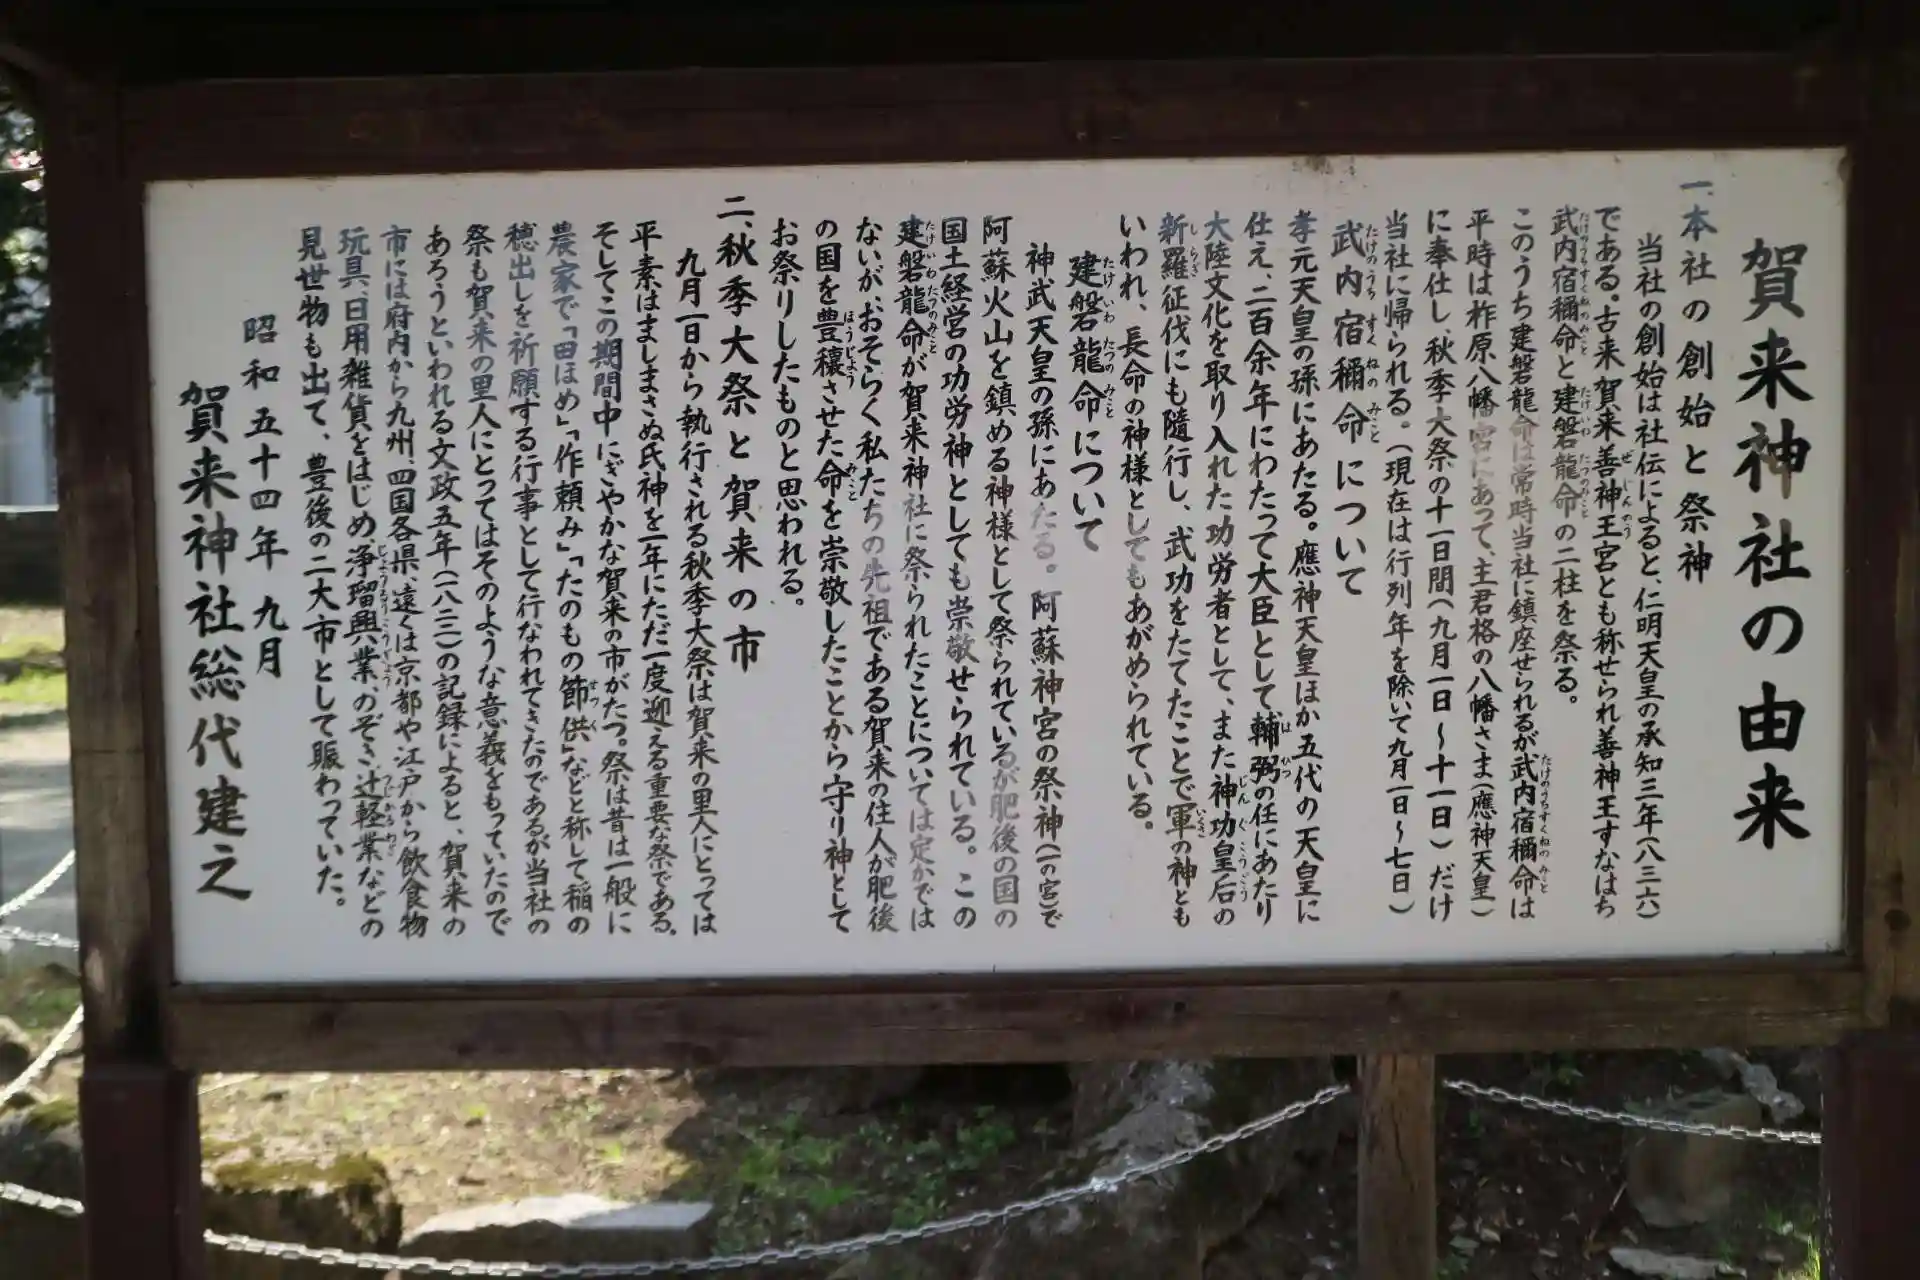 賀来神社の由来
一、本社の創始と祭神
当社の創始は社伝によると、仁明天皇の承知三年(八三六)
である。古来賀来善神王宮とも称せられ善神王すなはち
武内宿禰命と建磐龍命の二柱を祭る。
このうち建磐龍命は常時当社に鎮座せられるが武内宿禰命は
平時は柞原八幡宮にあって、主君格の八幡さま(應神天皇)
に奉仕し、秋季大祭の十一日間(九月一日~十一日)だけ
当社に帰られる。(現在は行列年を除いて九月一日~七日)
武内宿禰命について
孝元天皇の孫にあたる。應神天皇ほか五代の天皇に
仕え、二百余年にわたって大臣として、輔弼の任にあたり
大陸文化を取り入れた功労者として、また神功皇后の
新羅征伐にも隨行し、武功をたてたことで軍の神とも
いわれ、長命の神様としてもあがめられている。
建磐龍命について
神武天皇の孫にあたる。阿蘇神宮の祭神(一の宮)で
阿蘇火山を鎮める神様として祭られているが肥後の国の
国土経営の功労神としても崇敬せられている。この
建磐龍命が賀来神社に祭られたことについては定かでは
ないが、おそらく私たちの先祖である賀来の住人が肥後
の国を豊穰させた命を崇敬したことから守り神として
お祭りしたものと思われる。
二、秋季大祭と賀来の市
九月一日から執行される秋季大祭は賀来の里人にとっては
平素はましまさぬ氏神を一年にただ一度迎える重要な祭である。
そしてこの期間中にぎやかな賀来の市がたつ。祭は昔は一般に
農家で「田ほめ」「作頼み」「たのもの節供」などと称して稲の
穂出しを祈願する行事として行なわれてきたのであるが当社の
祭も賀来の里人にとってはそのような意義をもっていたので
あろうといわれる文政五年(一八二二)の記録によると、賀来の
市には府内から九州、四国各県、遠くは京都や江戸から飲食物
玩具、日用雑貨をはじめ、浄瑠興業、のぞき、辻軽業などの
見世物も出て、豊後の二大市として賑わっていた。
昭和五十四年 九月
賀来神社総代建之